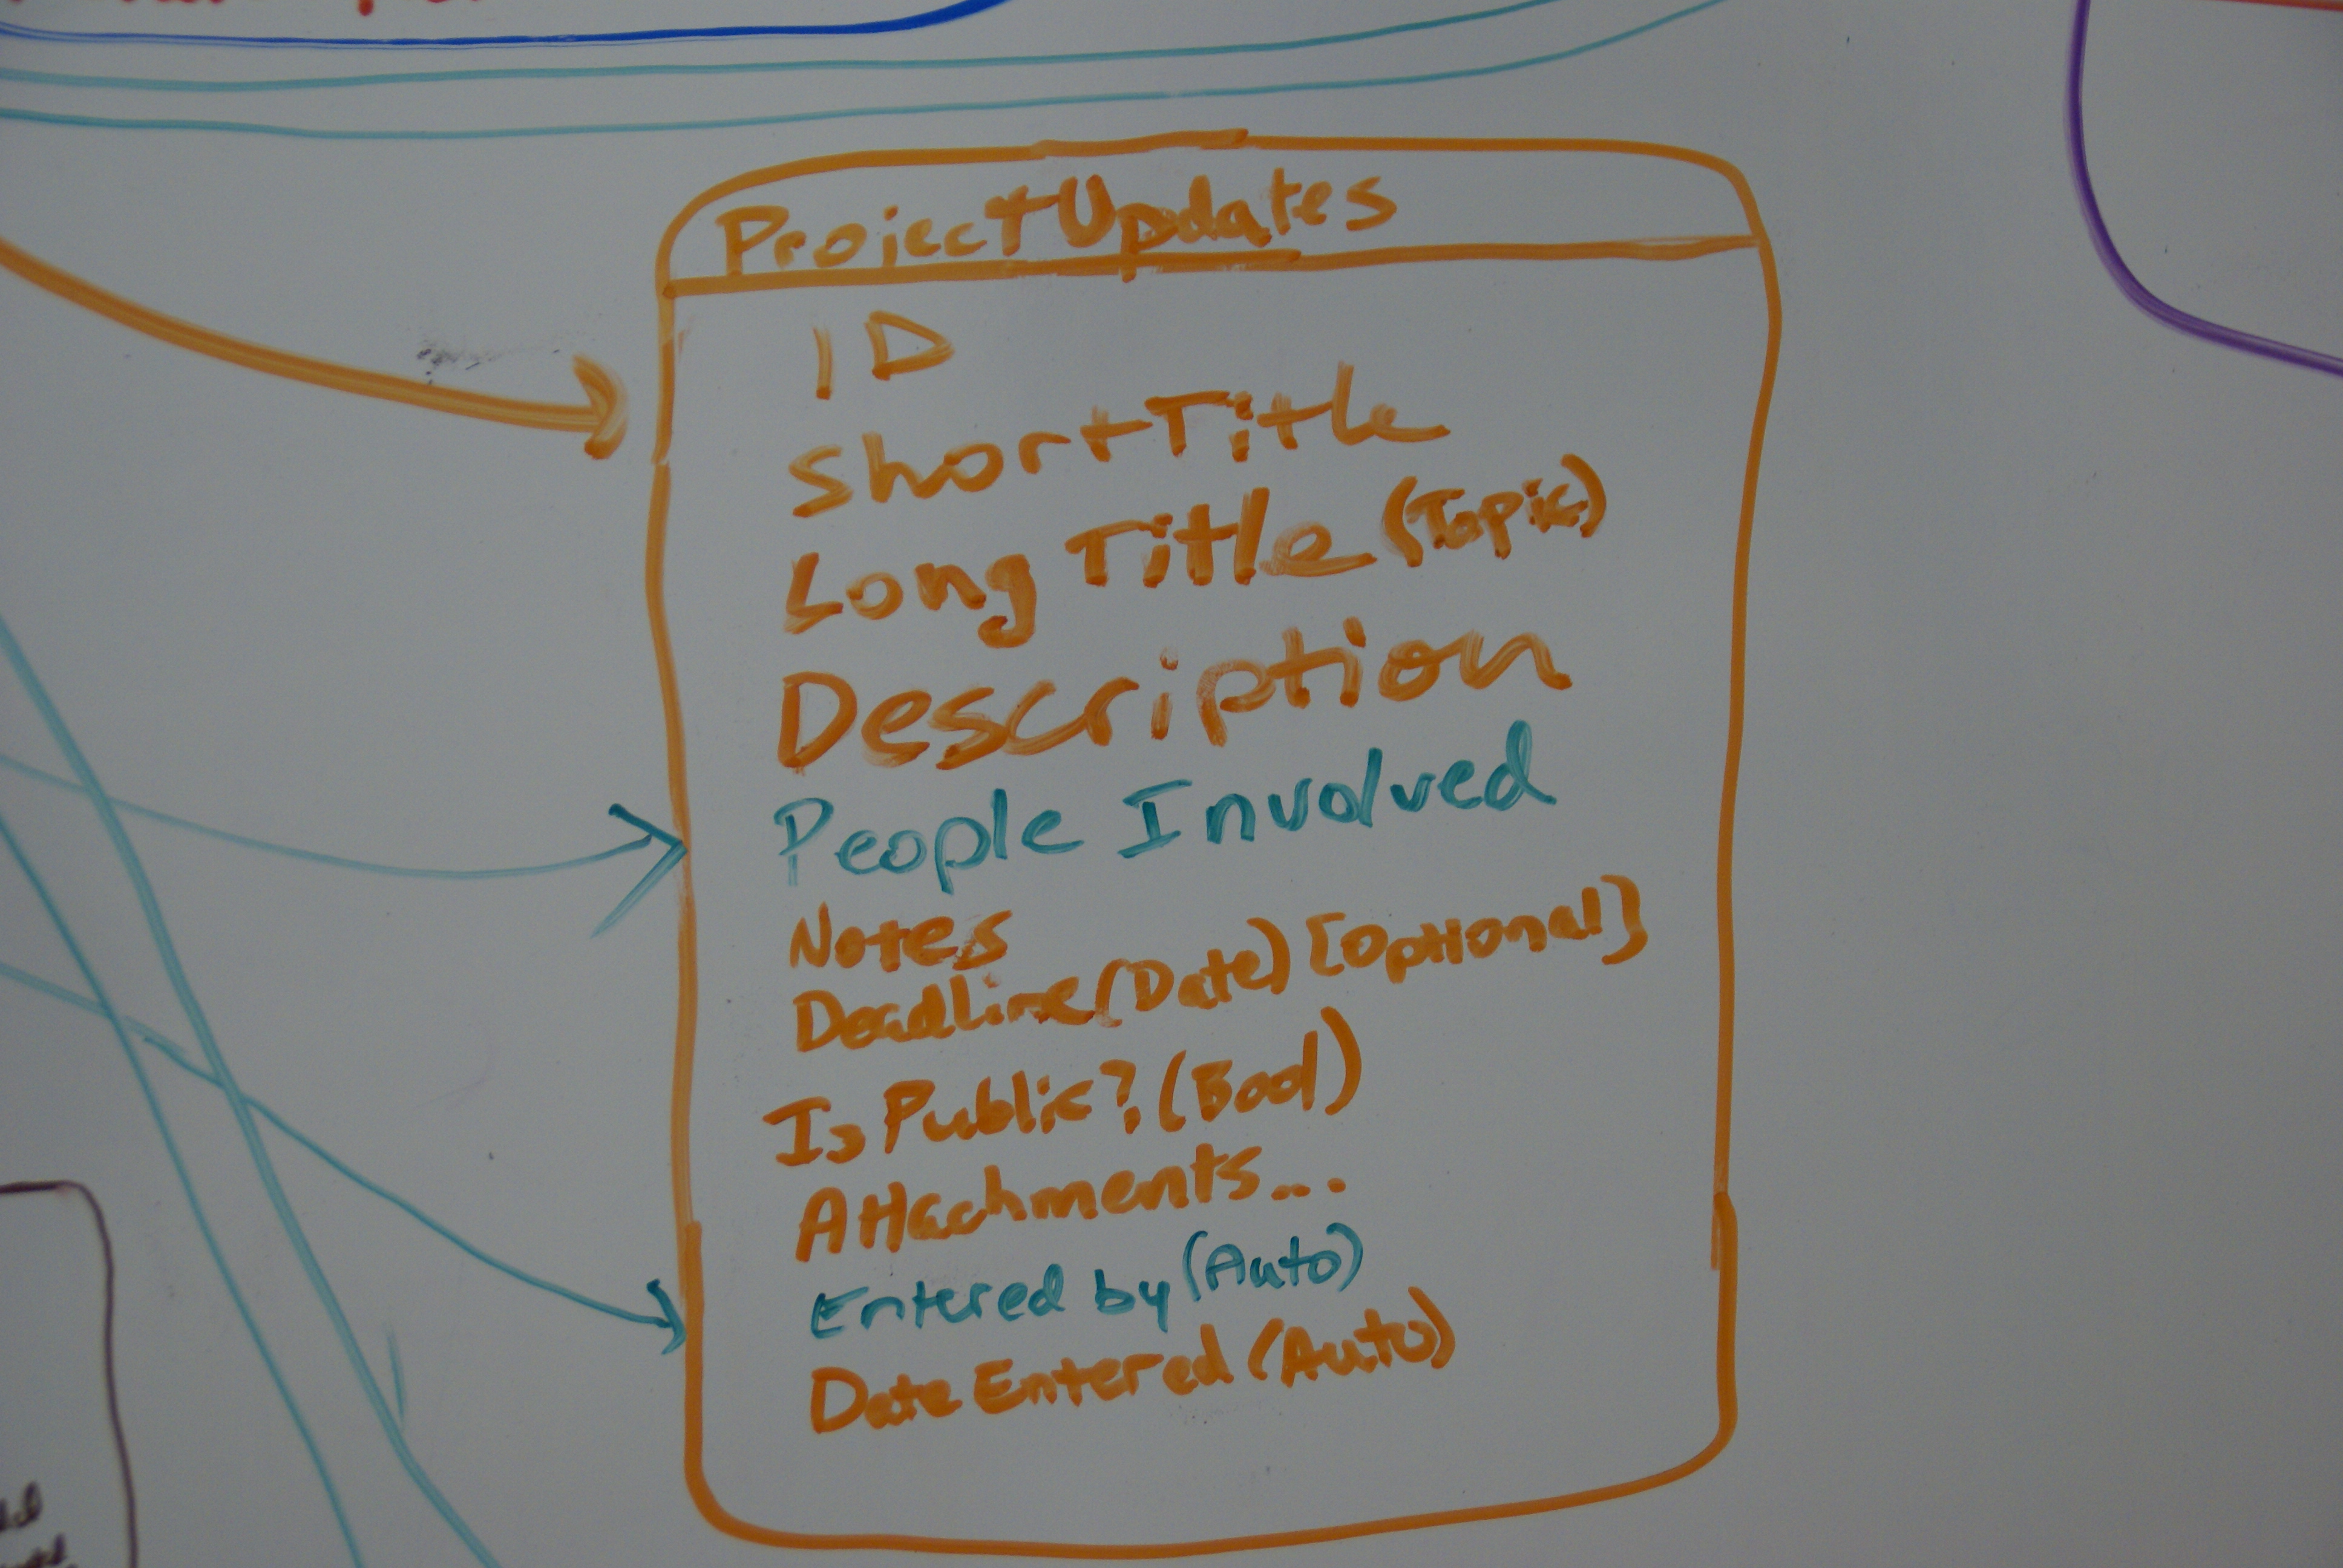 ProjectUpdates
ID
ShortTitle
Long Title (Topic)
Description
People Involved
Notes
Deadline (Date) [Optional]
Is Public? (Bool)
Attachments...
Entered by (Auto)
Date Entered (Auto)